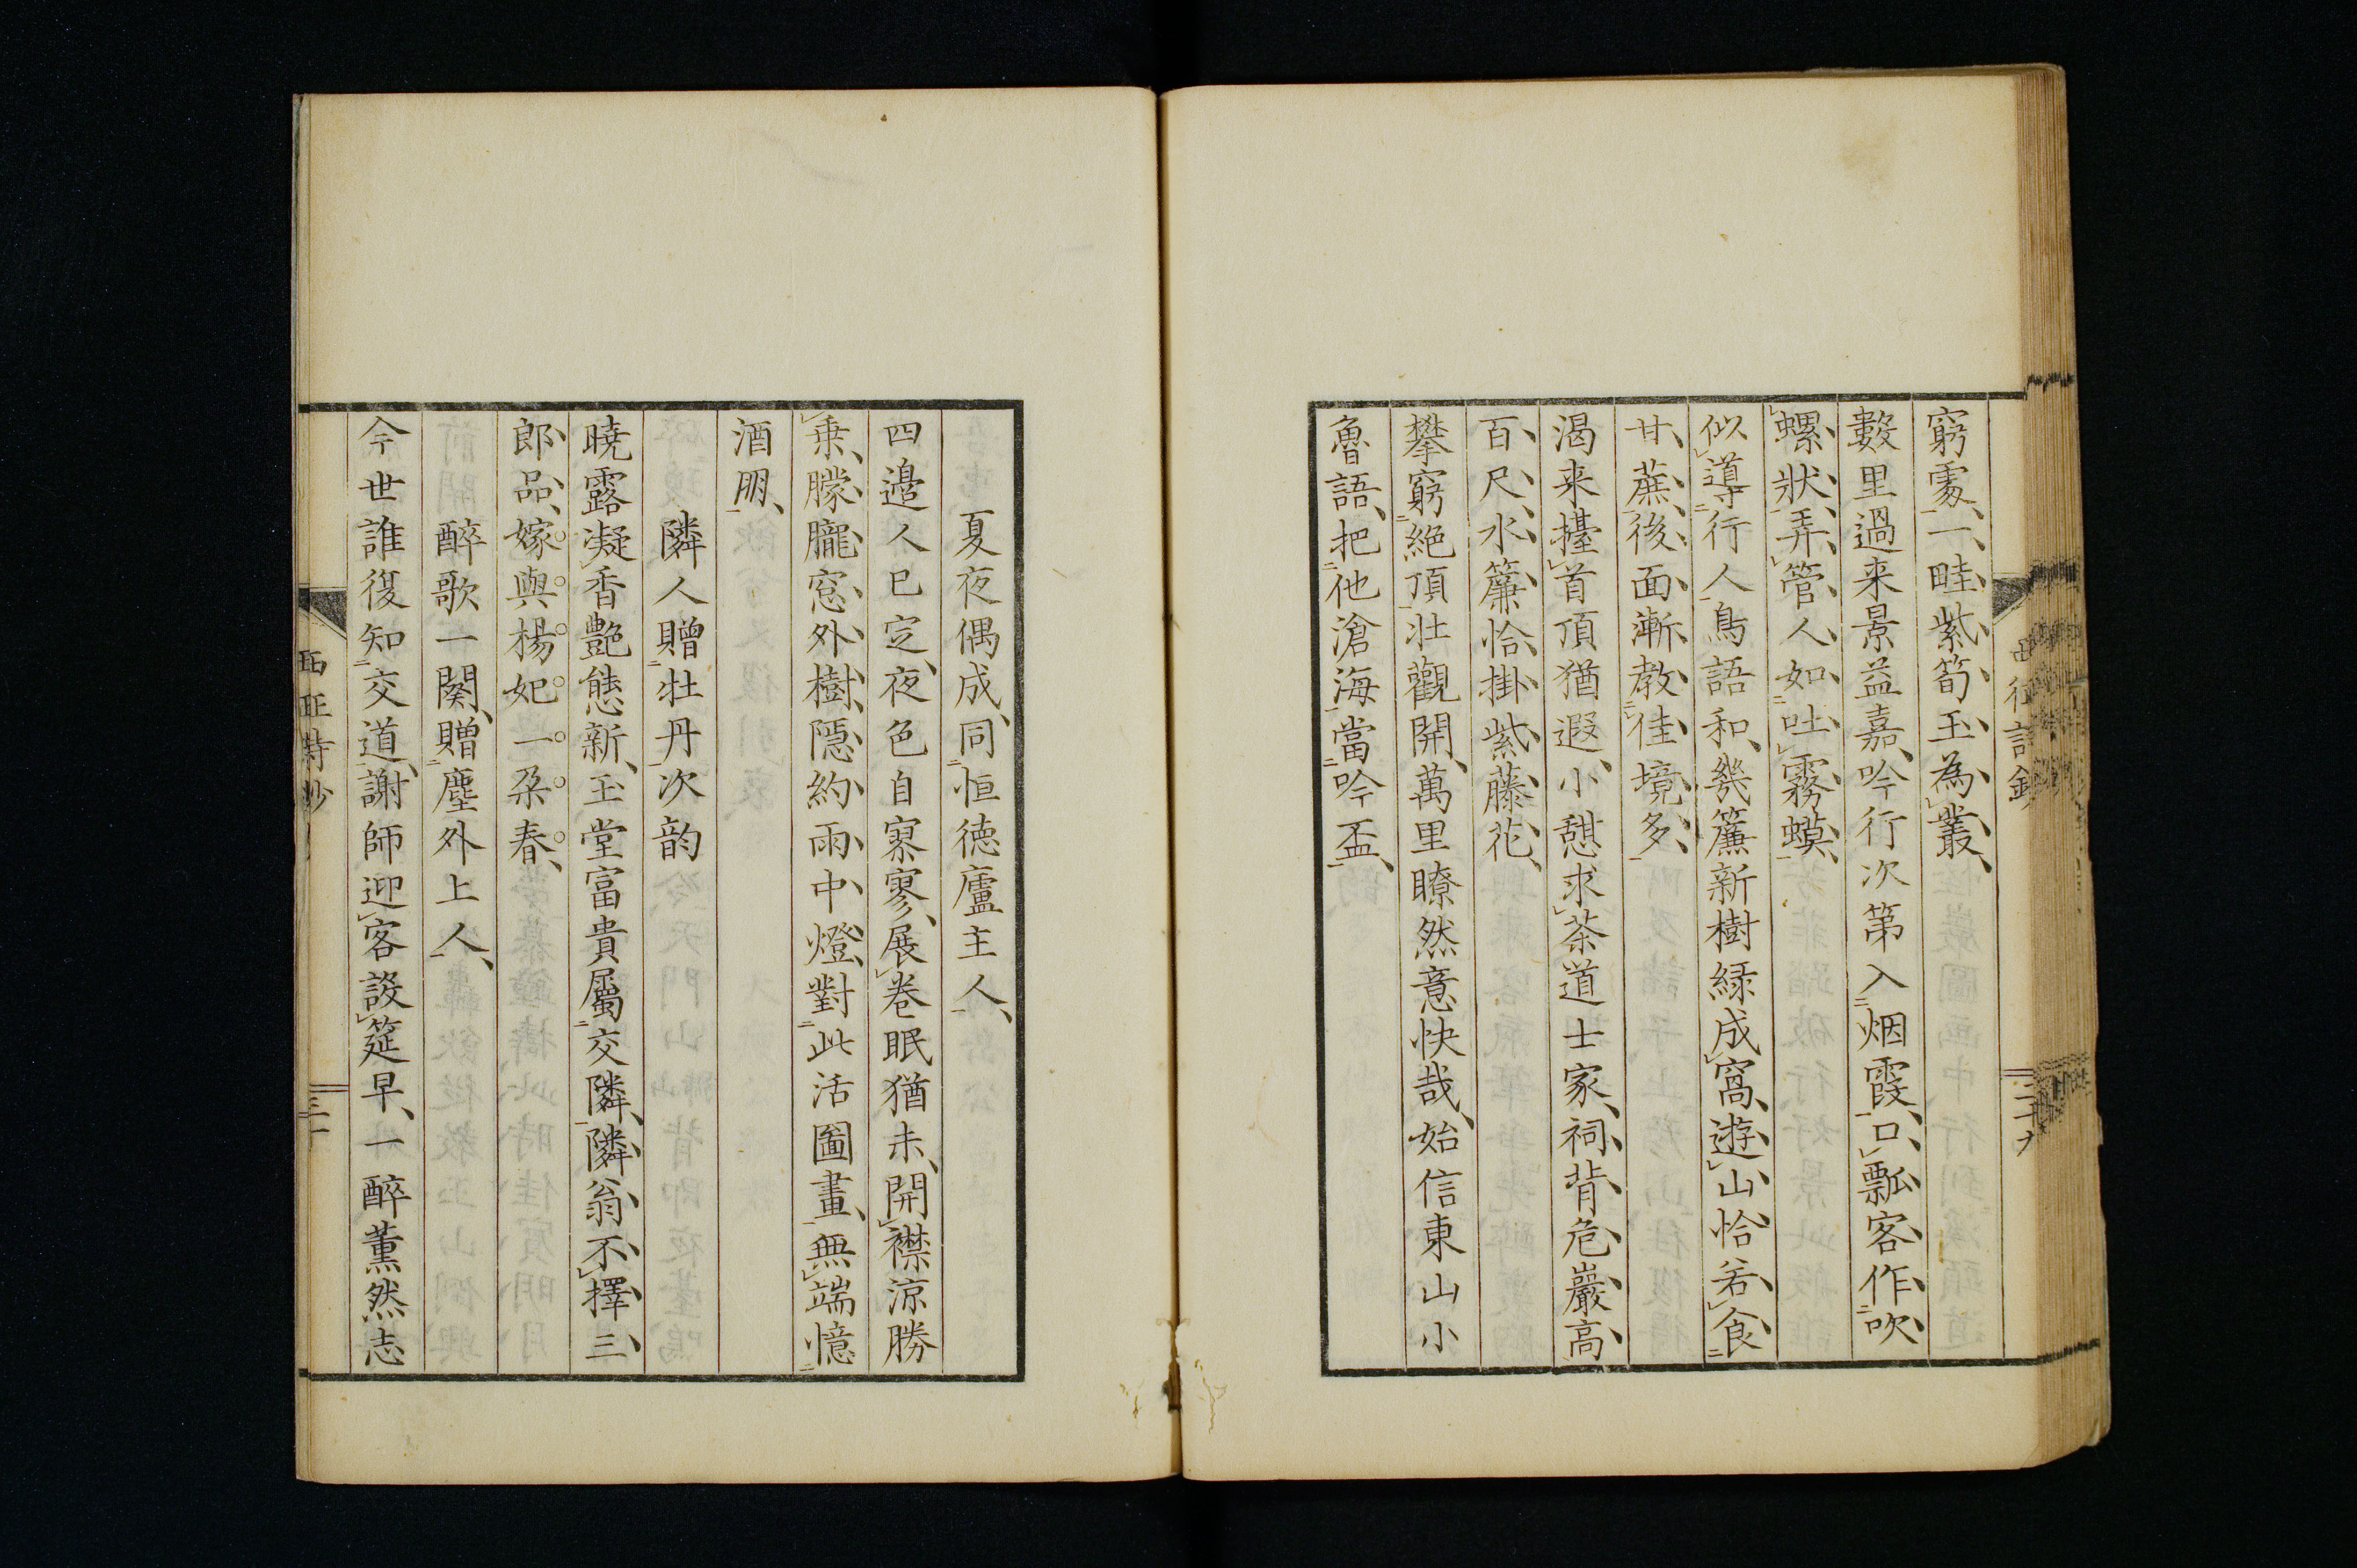 窮處一畦紫筍玉為叢
數里過来景益嘉吟行次第入烟霞口瓢客作吹
螺狀弄管人如吐霧蟆
似導行人鳥語和幾簾新樹緑成窩遊山恰若食
甘蔗後面漸教佳境多
渇来擡首頂猶遐小憩求茶道士家祠背危巖高
百尺水簾恰掛紫藤花
攀窮絕頂壯觀開萬里瞭然意快哉始信東山小
魯語把他滄海當吟盃
夏夜偶成同恒德廬主人
四邉人已定夜色自寥寥展卷眠猶未開襟涼勝
乗朦朧窓外樹隱約雨中燈對此活圖畫無端憶
酒朋
隣人贈牡丹次韵
曉露凝香艶態新玉堂富貴屬交隣隣翁不擇三
郎品嫁與楊妃一朶春
醉歌一闋贈塵外上人
今世誰復知交道謝師迎客設筵早一醉薫然志